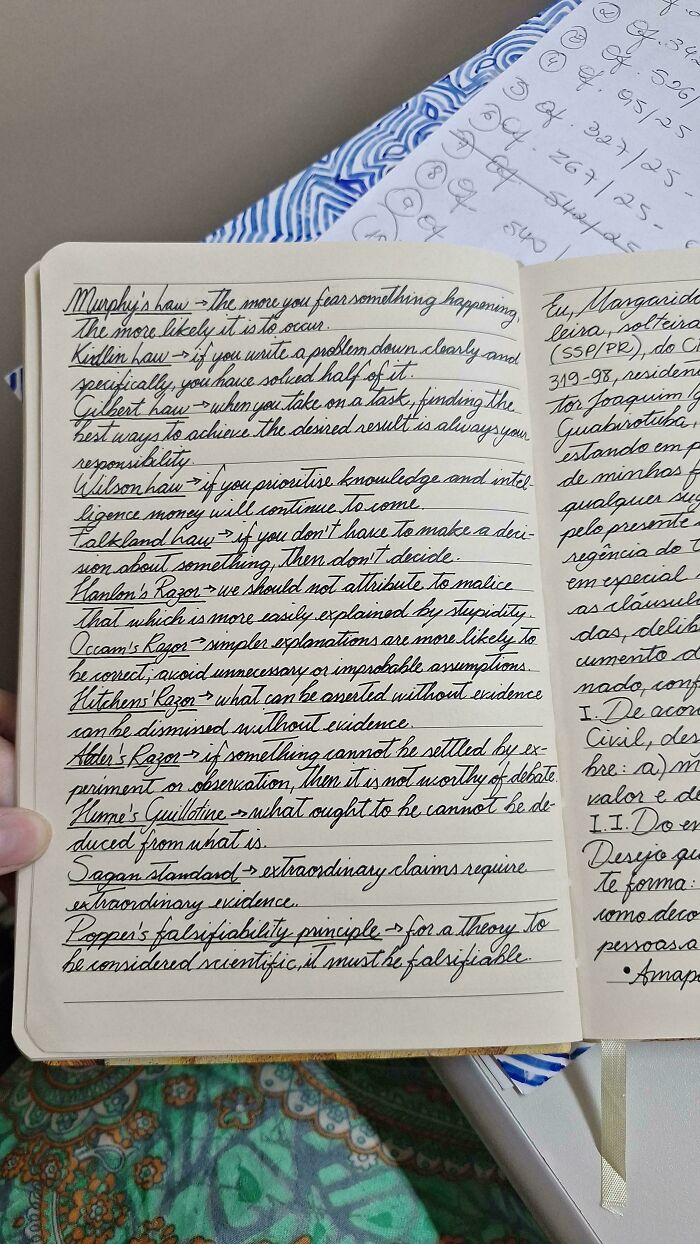 Murphy's Law → the more you fear something happening,
the more likely it is to occur.
Kidlin Law → if you write a problem down clearly and
specifically, you have solved half of it.
Gilbert Law → when you take on a task, finding the
best ways to achieve the desired result is always your
responsibility.
Wilson Law → if you prioritise knowledge and intel-
ligence money will continue to come.
Falkland Law → if you don't have to make a deci-
sion about something, then don't decide.
Hanlon's Razor → we should not attribute to malice
that which is more easily explained by stupidity.
Occam's Razor → simpler explanations are more likely to
be correct; avoid unnecessary or improbable assumptions.
Hitchens' Razor → what can be asserted without evidence
can be dismissed without evidence.
Alder's Razor → if something cannot be settled by ex-
periment or observation, then it is not worthy of debate.
Hume's Guillotine → what ought to be cannot be de-
duced from what is.
Sagan standard → extraordinary claims require
extraordinary evidence.
Popper's falsifiability principle → for a theory to
be considered scientific, it must be falsifiable.
Eu, Margarida
leira, solteira
(SSP/PR), do C
319-98, residen
tor Joaquim
Guabirotuba,
estando em p
de minhas f
qualquer su
pelo presente
regência do
em especial
as cláusula
das, delib
cumento d
nado, conf
I. De acor
Civil, des
bre: a) m
valor e de
I.I. Do en
Desejo qu
te forma:
como deco
pessoas a
• Amap
2 Of. 342
3 Of. 526/
4 Of. 95/25
5 Of. 327/25 -
6 Of. 267/25 -
7 Of. 542/25
8 Of. 540/
9 Of
10